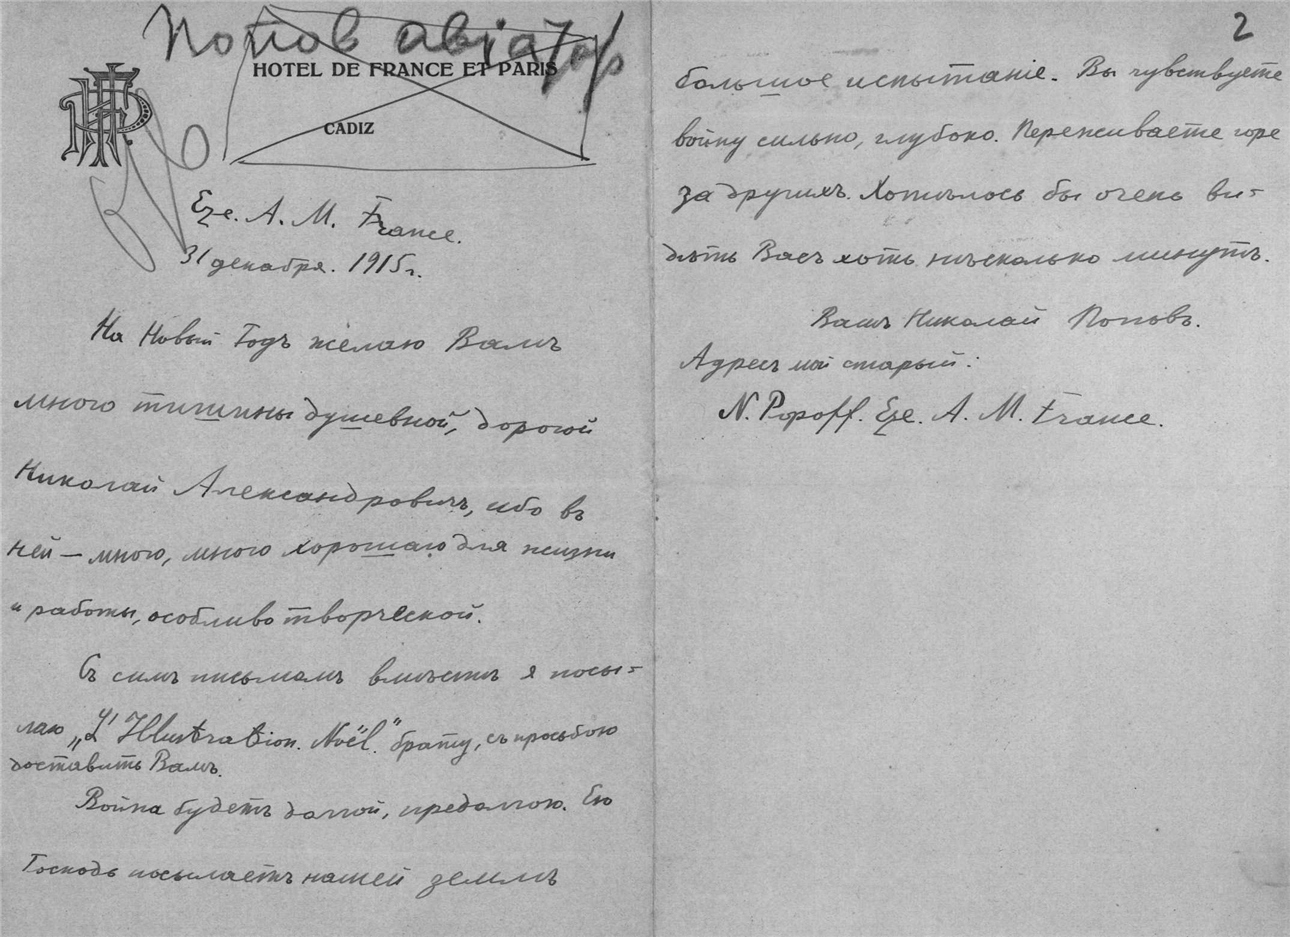 Попов авіатор
HOTEL DE FRANCE ET PARIS
CADIZ
Eze. A. M. France.
31 декабря. 1915 г.
На Новый Годъ желаю Вамъ
много тишины душевной, дорогой
Николай Александровичъ, ибо въ
ней — много, много хорошаго для жизни
и работы, особливо творческой.
Съ симъ письмомъ вмѣстѣ я посы-
лаю „L'Illustration. Noël." брату, съ просьбою
доставить Вамъ.
Война будетъ долгой, предолгою. Ею
Господь посылаетъ нашей землѣ
2
большое испытаніе. Вы чувствуете
войну сильно, глубоко. Переживаете горе
за другихъ. Хотѣлось бы очень ви-
дѣть Васъ хоть нѣсколько минутъ.
Вашъ Николай Поповъ.
Адресъ мой старый:
N. Popoff. Eze. A. M. France.